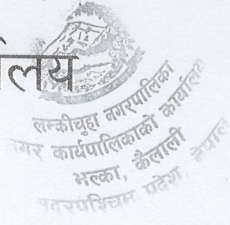 र्यालय
लम्कीचुहा नगरपालिका
नगर कार्यपालिकाको कार्यालय
भल्का, कैलाली
सुदूरपश्चिम प्रदेश, नेपाल